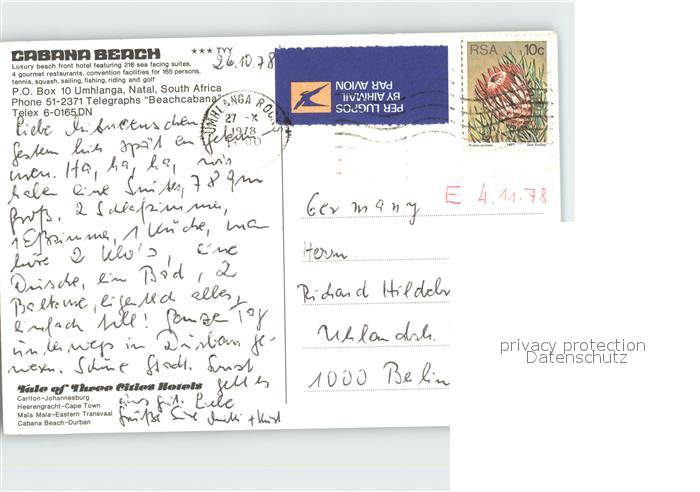 CABANA BEACH *** TYY
Luxury beach front hotel featuring 216 sea facing suites,
4 gourmet restaurants, convention facilities for 165 persons,
tennis, squash, sailing, fishing, riding and golf
P.O. Box 10 Umhlanga, Natal, South Africa
Phone 51-2371 Telegraphs "Beachcabana"
Telex 6-0165DN
26.10.78
Liebe
gestern hier spät an gekom-
men. Ha, ha, ha, wir
haben eine Suite, 78 qm
groß. 2 Schlafzimmer,
1 Eßzimmer, 1 Küche,
2 Klo's, eine
Dusche, ein Bad, 2
Balkone, eigentlich alles,
einfach toll! Ganzen Tag
unterwegs in Durban ge-
wesen. Schöne Stadt. Sonst
geht es
uns gut. Liebe
Grüße +
Tale of Three Cities Hotels
Carlton-Johannesburg
Heerengracht-Cape Town
Mala Mala-Eastern Transvaal
Cabana Beach-Durban
UMHLANGA ROCKS
27 -X
1978
PER LUGPOS
BY AIRMAIL
PAR AVION
RSA 10c
1977
E 4.11.78
Germany
Herrn
Richard
Uhlandstr.
1000 Berlin
privacy protection
Datenschutz